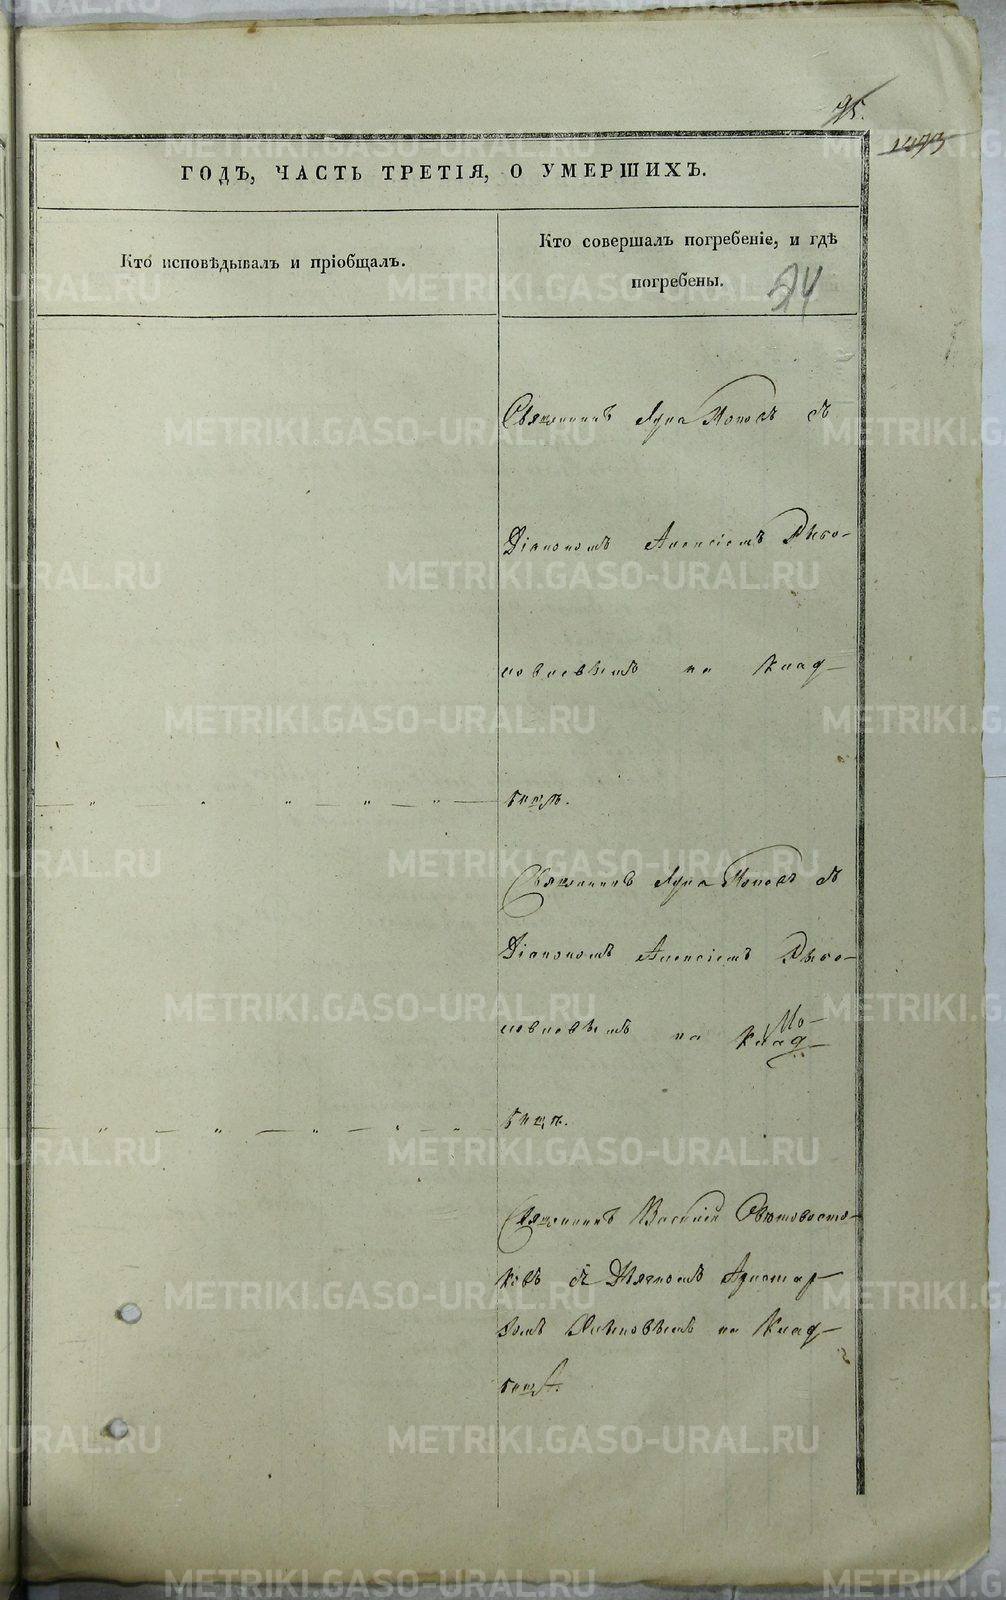 95.
1093
ГОДЪ, ЧАСТЬ ТРЕТІЯ, О УМЕРШИХЪ.
Кто исповѣдывалъ и пріобщалъ.
Кто совершалъ погребеніе, и гдѣ
погребены.
94
Священникъ Лука Поповъ съ
Діакономъ Алексіемъ
на Клад-
бищѣ.
Священникъ Лука Поповъ съ
Діакономъ Алексіемъ
на Клад-
бищѣ.
Священникъ Василій
съ Дьячкомъ Аристар-
хомъ на Клад-
бищѣ.
METRIKI.GASO-URAL.RU